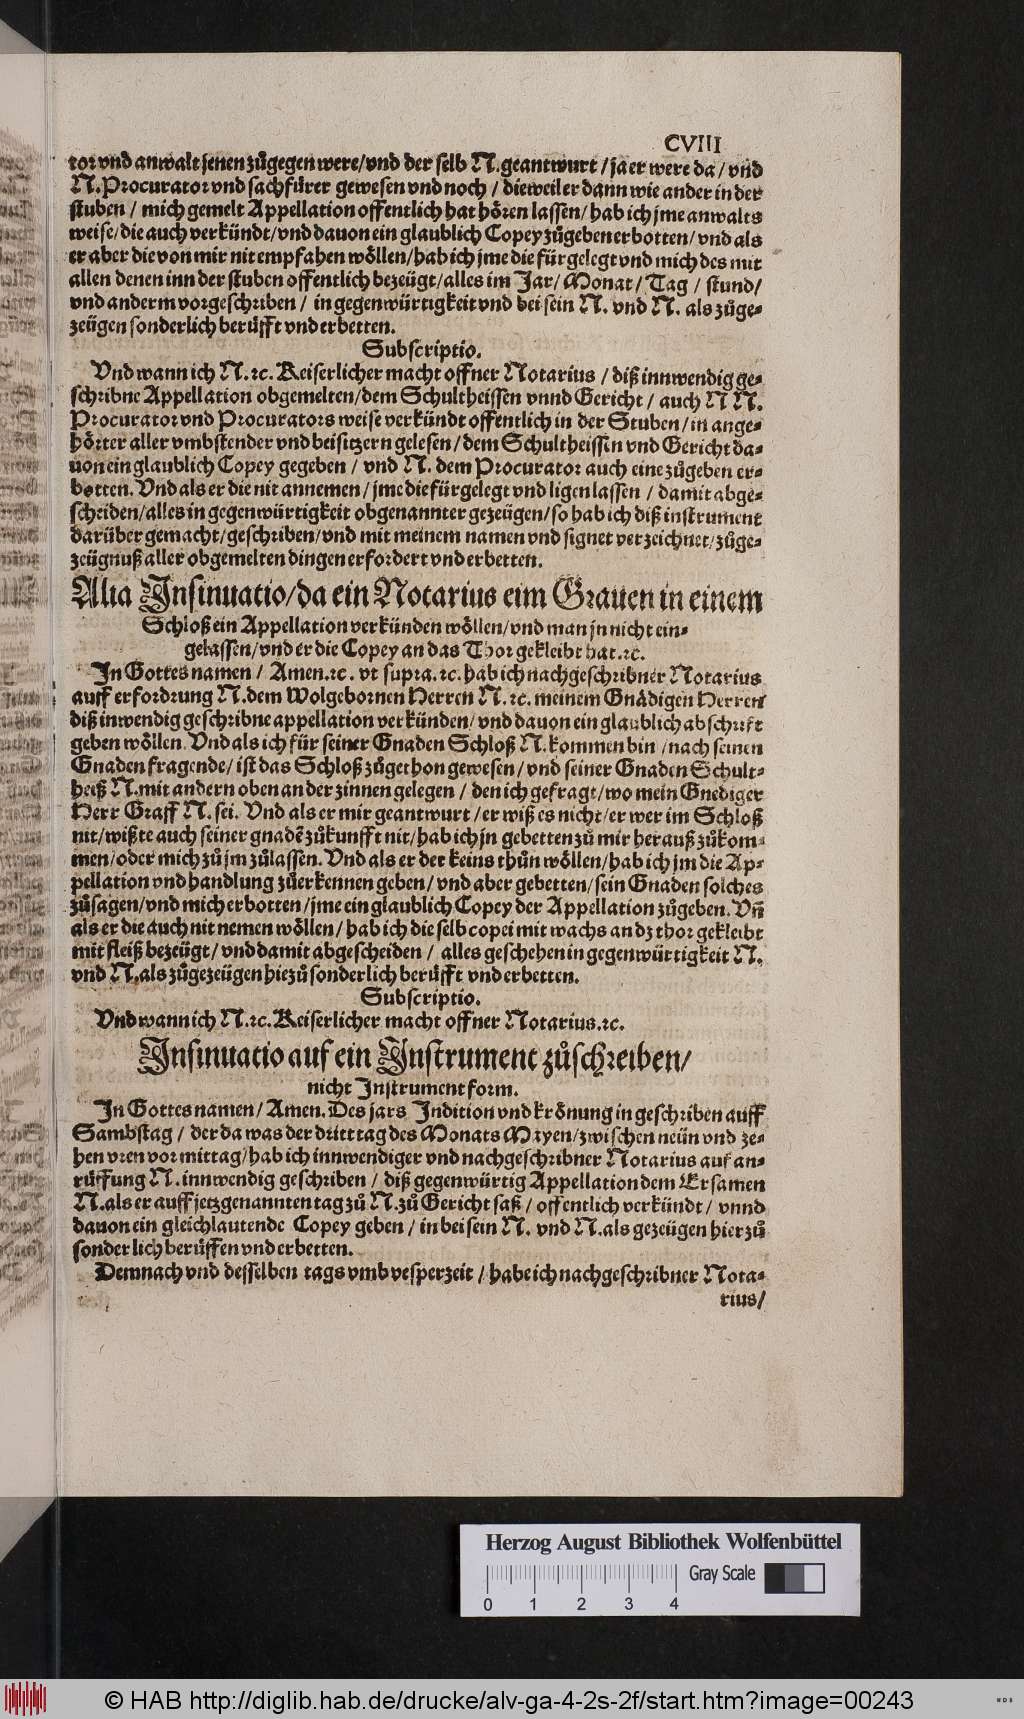 CVIII
tor vnd anwalt jenen zůgegen were/vnd der selb N. geantwurt / ja er were da / vnd
N. Procurator vnd sachfürer gewesen vnd noch / dieweil er dann wie ander in der
stuben / mich gemelt Appellation offentlich hat hören lassen/ hab ich jme anwalts
weise/die auch verkündt/vnd dauon ein glaublich Copey zůgeben erbotten/ vnd als
er aber die von mir nit empfahen wöllen/hab ich jme die für gelegt vnd mich des mit
allen denen inn der stuben offentlich bezeügt/alles im Jar/ Monat / Tag / stund/
vnd anderm vorgeschriben / in gegenwürtigkeit vnd bei sein N. vnd N. als zůge-
zeügen sonderlich berüfft vnd erbetten.
Subscriptio.
Vnd wann ich N. ꝛc. Keiserlicher macht offner Notarius / diß innwendig ge-
schribne Appellation obgemelten/dem Schultheissen vnnd Gericht / auch N N.
Procurator vnd Procurators weise verkündt offentlich in der Stuben/in ange-
hörter aller vmbstender vnd beisitzern gelesen/dem Schultheissen vnd Gericht da-
uon ein glaublich Copey gegeben / vnd N. dem Procurator auch eine zůgeben er-
botten. Vnd als er die nit annemen/jme die fürgelegt vnd ligen lassen / damit abge-
schriden/alles in gegenwürtigkeit obgenannter gezeügen/so hab ich diß instrument
darüber gemacht/geschriben/vnd mit meinem namen vnd signet verzeichnet/zůge-
zeügnuß aller obgemelten dingen erfordert vnd erbetten.
Alia Insinuatio/da ein Notarius eim Grauen in einem
Schloß ein Appellation verkünden wöllen/vnd man jn nicht ein-
gelassen/vnd er die Copey an das Thor gekleibt hat.ꝛc.
In Gottes namen / Amen.ꝛc. vt supra.ꝛc. hab ich nachgeschribner Notarius
auff erfordrung N. dem Wolgebornen Herren N. ꝛc. meinem Gnädigen Herren
diß inwendig geschribne appellation verkünden/ vnd dauon ein glaublich abschrift
geben wöllen. Vnd als ich für seiner Gnaden Schloß N. kommen bin /nach seinen
Gnaden fragende/ ist das Schloß zůgethon gewesen/ vnd seiner Gnaden Schult-
heiß N. mit andern oben an der zinnen gelegen / den ich gefragt/wo mein Gnediger
Herr Graff N. sei. Vnd als er mir geantwurt /er wiß es nicht/er wer im Schloß
nit/wißte auch seiner gnadē zůkunfft nit/hab ich jn gebetten zů mir herauß zůkom-
men/oder mich zů jm zůlassen. Vnd als er der keins thůn wöllen/hab ich jm die Ap-
pellation vnd handlung zůerkennen geben/ vnd aber gebetten/sein Gnaden solches
zůsagen/vnd mich erbotten /jme ein glaublich Copey der Appellation zůgeben. Vñ
als er die auch nit nemen wöllen / hab ich die selb copei mit wachs an dz thor gekleibt
mit fleiß bezeügt/ vnd damit abgescheiden / alles geschehen in gegenwürtigkeit N.
vnd N. als zůgezeügen hiezů sonderlich berüfft vnd erbetten.
Subscriptio.
Vnd wann ich N. ꝛc. Keiserlicher macht offner Notarius.ꝛc.
Insinuatio auf ein Instrument zůschreiben/
nicht Instrument form.
In Gottes namen/ Amen. Des jars Indition vnd krönung in geschriben auff
Sambstag / der da was der dritt tag des Monats Mayen/zwischen neün vnd ze-
hen vren vor mittag/hab ich innwendiger vnd nachgeschribner Notarius auf an-
rüffung N. innwendig geschriben / diß gegenwürtig Appellation dem Ersamen
N. als er auff jetzgenannten tag zů N. zů Gericht saß / offentlich verkündt / vnnd
dauon ein gleichlautende Copey geben / in beisein N. vnd N. als gezeügen hierzů
sonderlich berüffen vnd erbetten.
Demnach vnd desselben tags vmb vesperzeit / habe ich nachgeschribner Nota-
rius/
Herzog August Bibliothek Wolfenbüttel
Gray Scale
0 1 2 3 4
© HAB http://diglib.hab.de/drucke/alv-ga-4-2s-2f/start.htm?image=00243